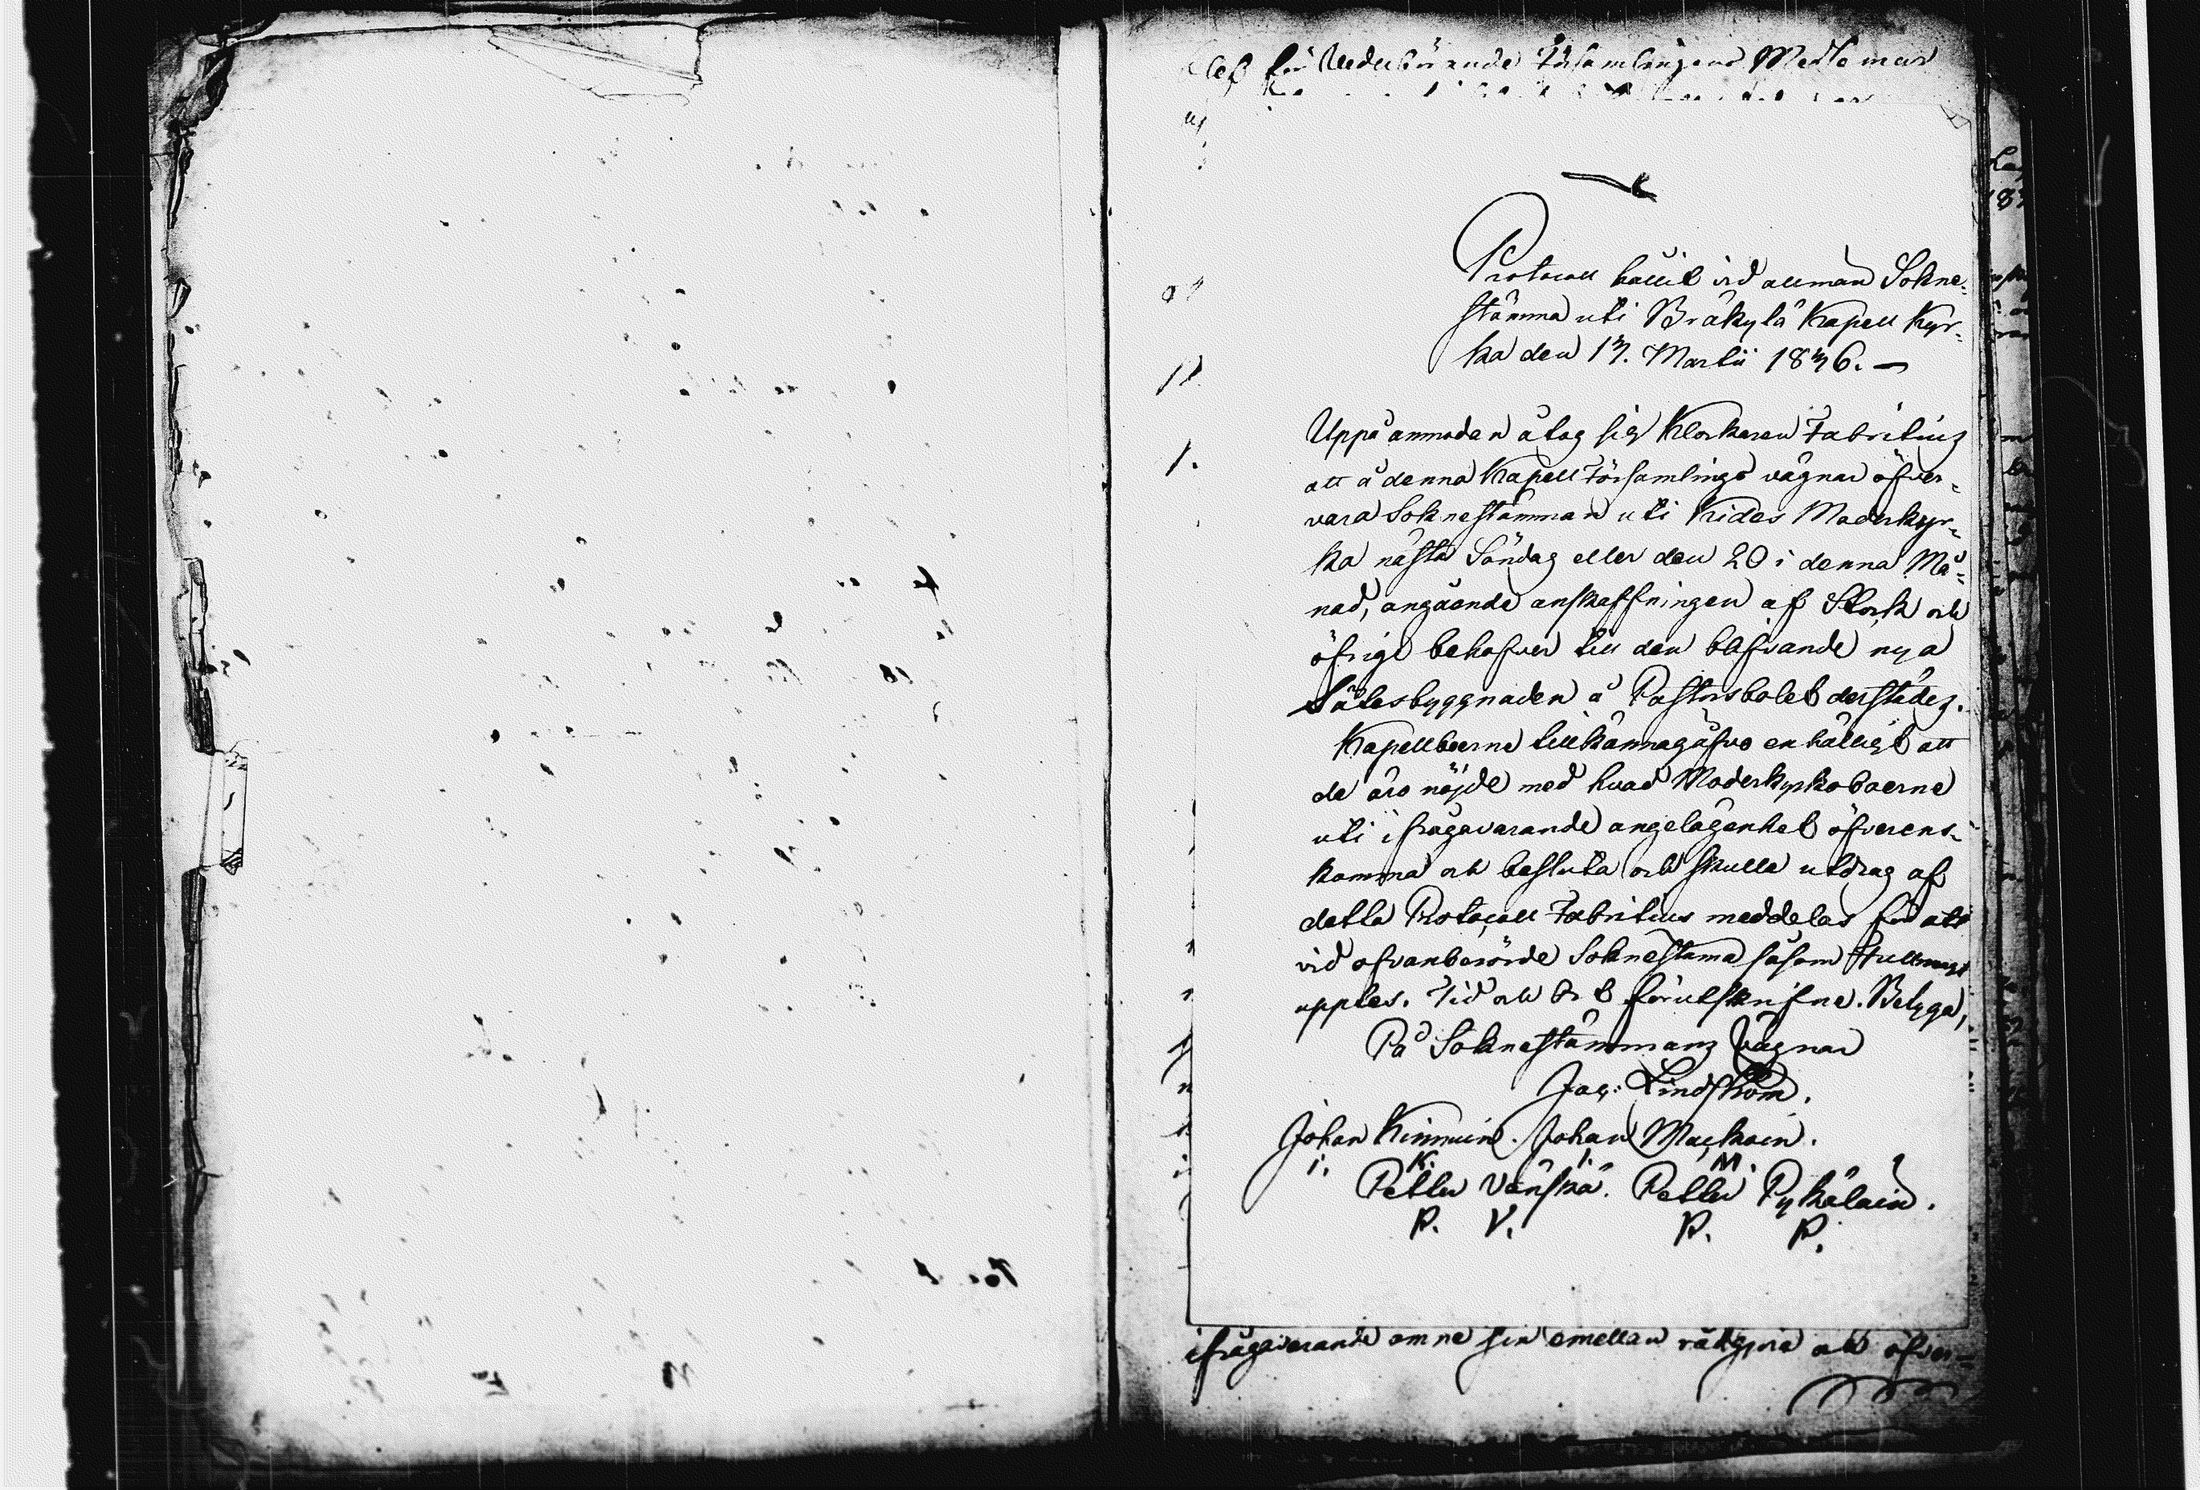 för Vederbörande Församlingens Medlemar
Protocoll hållit vid allmän Sokne-
stämma uti Bräkylä Kapell Kyr-
ka den 13. Martii 1836. —
Uppå anmodan åtog sig Klockaren Fabritius
att å denna Kapell Församlings vägnar öfver-
vara Soknestämman uti Kides Moderkyr-
ka nästa Söndag eller den 20 i denna Må-
nad, angående anskaffningen af Stock och
öfrige behofver till den blifvande nya
Sätesbyggnaden å Pastorsbolet derstädes.
Kapellboerne tillkännagåfvo enhälligt att
de äro nöjde med hvad Moderkyrkoboerne
uti ifrågavarande angelägenhet öfverens-
komma och besluta och skulle utdrag af
detta Protocoll Fabritius meddelas för att
vid ofvanberörde Soknestäma såsom Fullmagt
upples. Tid och Ort förutskrifne. Betyga,
På Soknestämmans Vägnar
Jac: Lindström.
Johan Kinnuin. Johan Mackoin.
I. K. I. M.
Petter Vänskä. Petter Pykäläin.
P. V. P. P.
ifrågavarande ämne sin emellan rådgjöra och öfver-